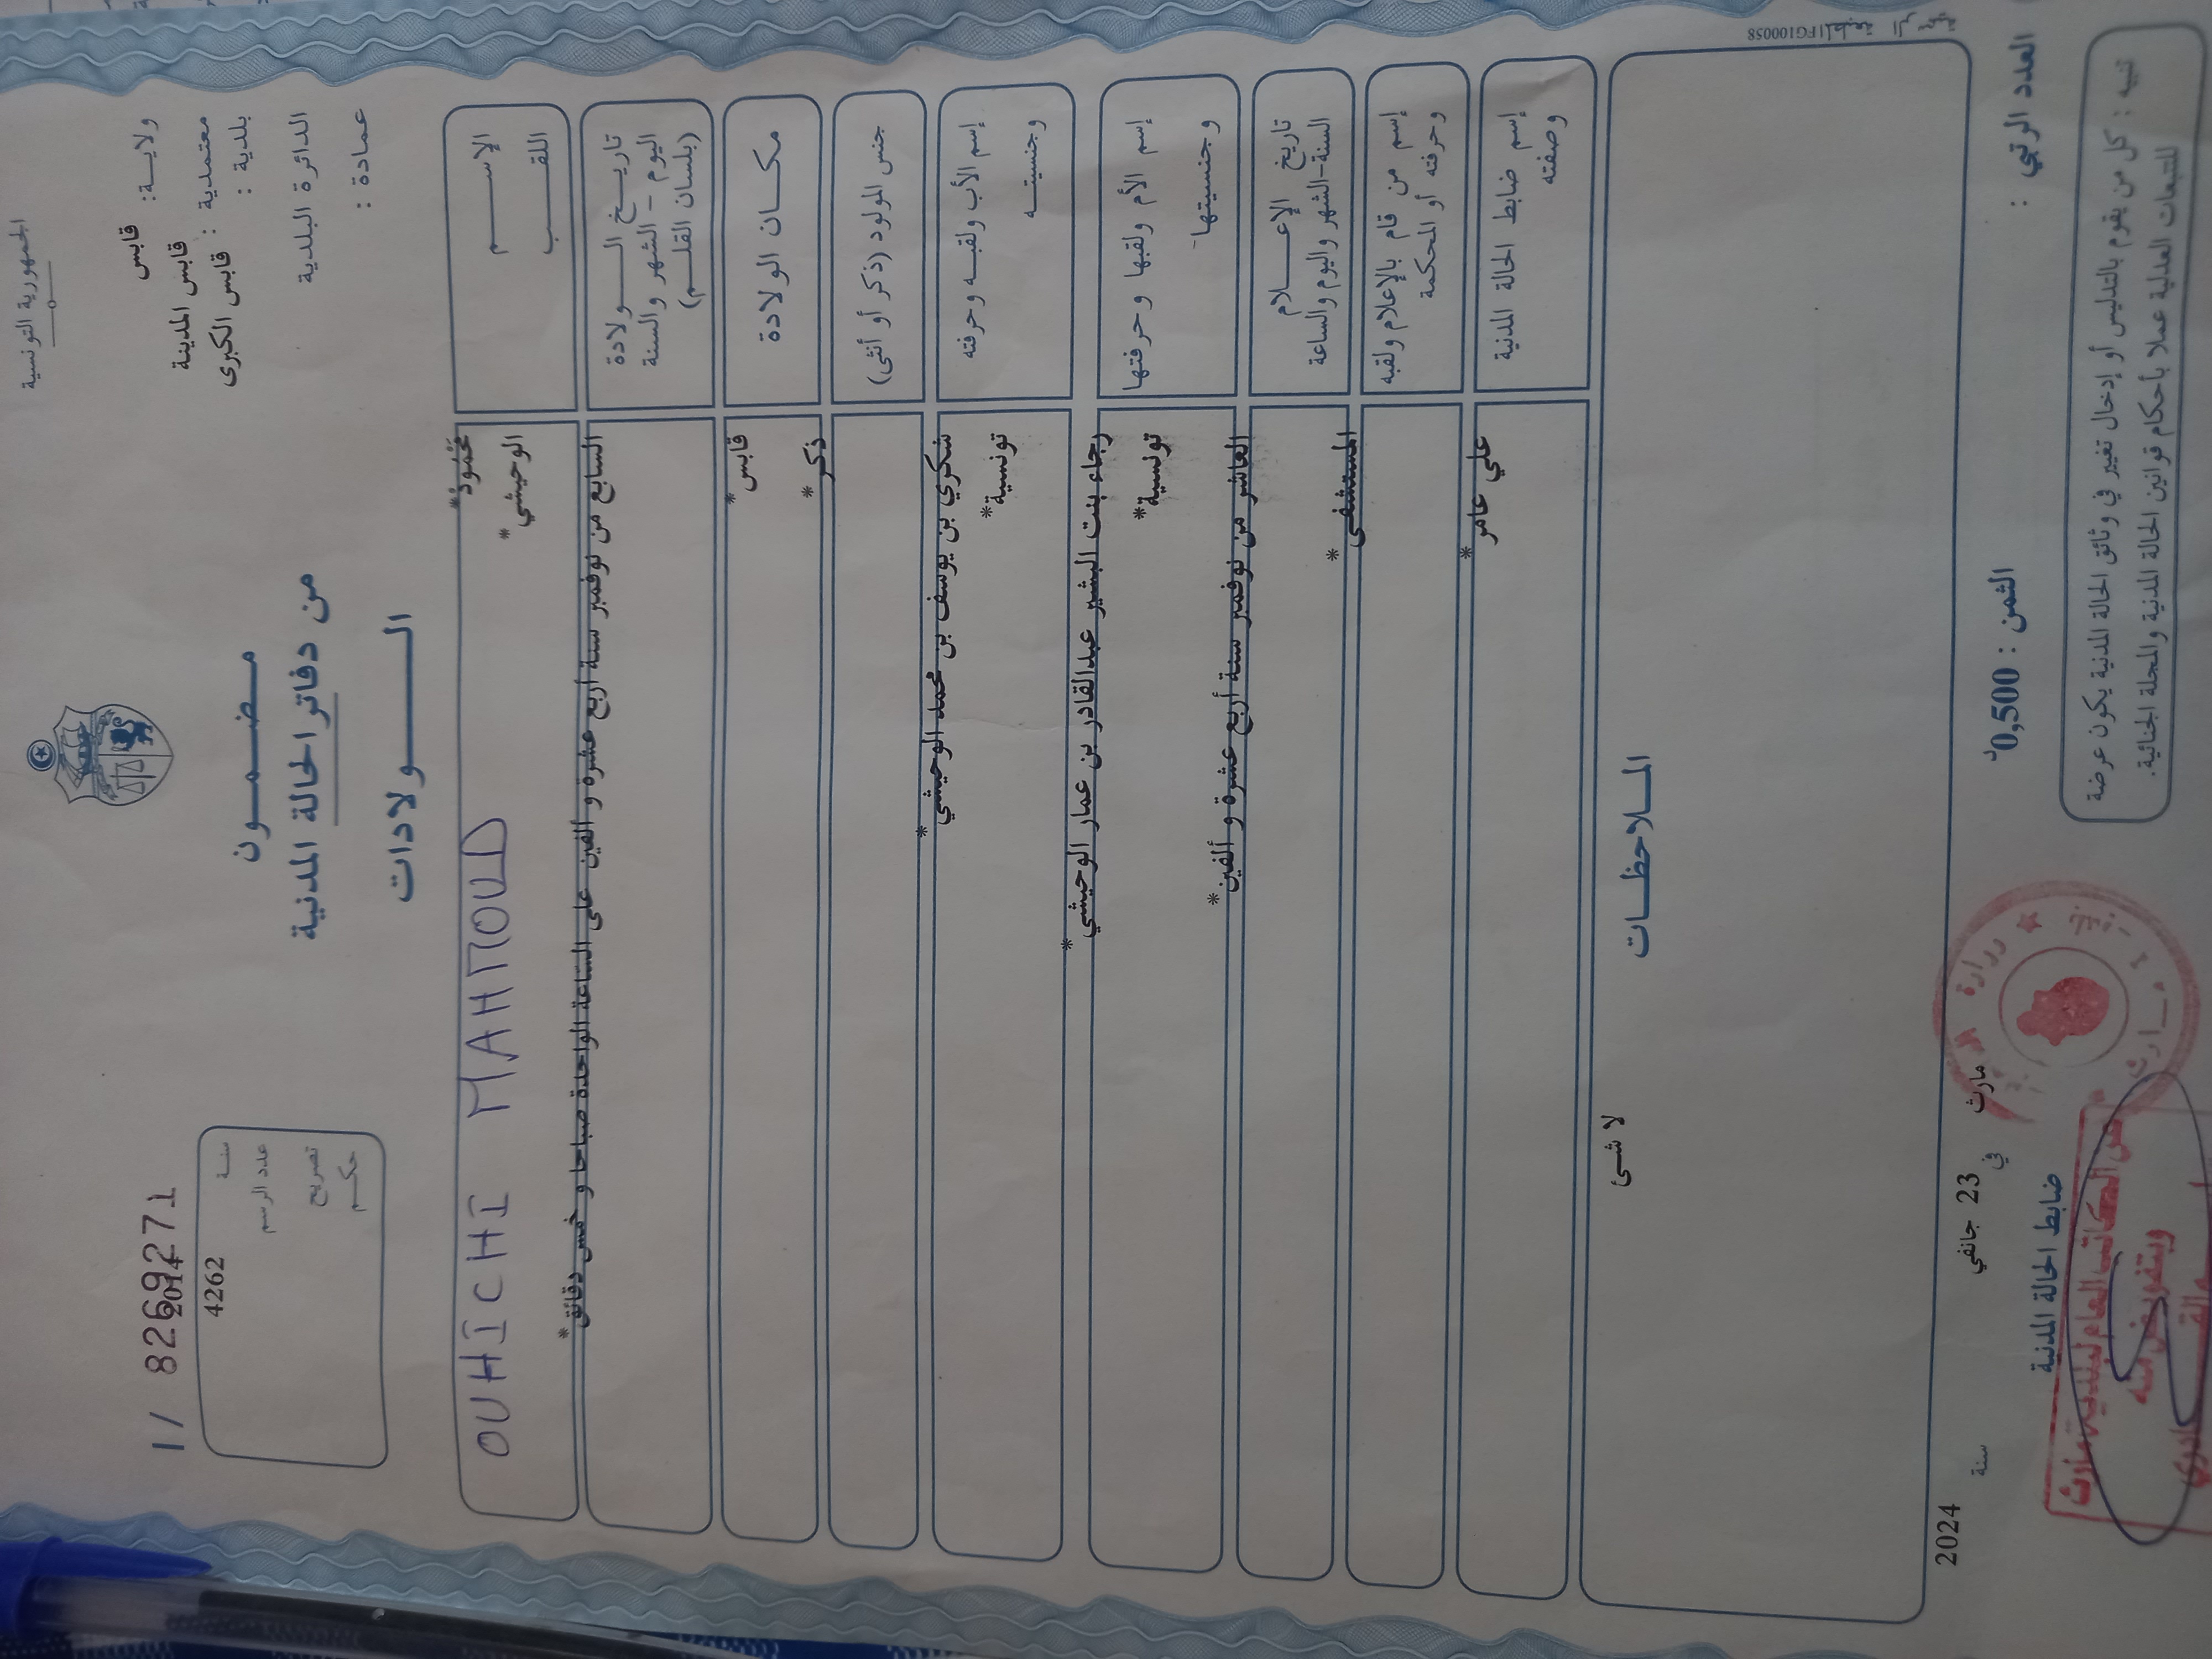 الجمهورية التونسية
ولايـة: قابس
معتمدية : قابس المدينة
بلدية : قابس الكبرى
الدائرة البلدية
عمادة :
مـضـمـون
من دفاتر الحالة المدنية
الـــولادات
1/ 8269271
سنـة
4262
عدد الرسم
تصريح
حكـم
الإســـم
محمود*
اللقـــب
الوحيشي*
OUHICHI MAHMOUD
تاريـخ الـــولادة
اليوم - الشهر والسنة
(بلسان القلـم)
السابع من نوفمبر سنة أربع عشرة و ألفين على الساعة الواحدة صباحا و خمس دقائق*
مكـان الولادة
قابس*
جنس المولود (ذكر أو أنثى)
ذكر*
إسم الأب ولقبـه وحرفته
وجنسيتـه
شكري بن يوسف بن محمد الوحيشي*
تونسية*
إسم الأم ولقبها وحرفتها
وجنسيتها
رجاء بنت البشير عبدالقادر بن عمار الوحيشي*
تونسية*
تاريخ الإعـــلام
السنة-الشهر واليوم والساعة
العاشر من نوفمبر سنة أربع عشرة و ألفين*
إسم من قام بالإعلام ولقبه
وحرفته أو المحكمة
المستشفى*
إسم ضابط الحالة المدنية
وصفته
علي عامر*
الملاحظـات
لا شئ
المطبعة الرسمية FG100058
مارث في 23 جانفي سنة 2024
ضابط الحالة المدنية
عن الكاتب العام لبلدية مارث
وبتفويض منه
العدد الرتبي :
الثمن : 0,500د
تنبيه : كل من يقوم بالتدليس أو إدخال تغيير في وثائق الحالة المدنية يكون عرضة
للتتبعات العدلية عملا بأحكام قوانين الحالة المدنية والمجلة الجنائية.